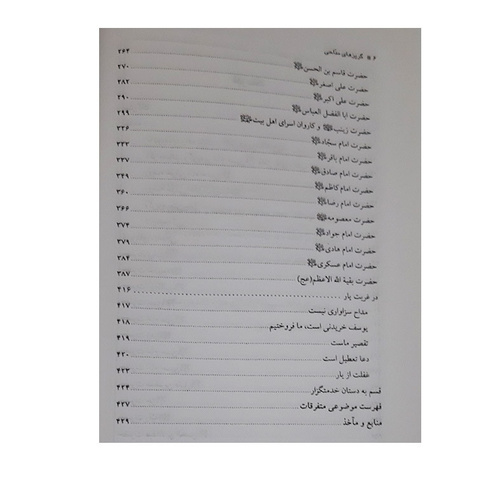 ۶ گریزهای مداحی
حضرت قاسم بن الحسن ۲۶۴
حضرت علی اصغر ۲۷۰
حضرت علی اکبر ۲۸۲
حضرت ابا الفضل العباس ۲۹۰
حضرت زینب و کاروان اسرای اهل بیت ۲۹۹
حضرت امام سجّاد ۳۲۶
حضرت امام باقر ۳۳۳
حضرت امام صادق ۳۳۷
حضرت امام کاظم ۳۴۹
حضرت امام رضا ۳۶۰
حضرت معصومه ۳۶۶
حضرت امام جواد ۳۷۴
حضرت امام هادی ۳۷۹
حضرت امام عسکری ۳۸۴
حضرت بقیة الله الاعظم(عج) ۳۸۷
در غربت یار ۴۱۶
مداح سزاواری نیست ۴۱۷
یوسف خریدنی است، ما فروختیم ۴۱۸
تقصیر ماست ۴۱۹
دعا تعطیل است ۴۲۰
غفلت از یار ۴۲۳
قسم به دستان خدمتگزار ۴۲۴
فهرست موضوعی متفرقات ۴۲۷
منابع و مآخذ ۴۲۹